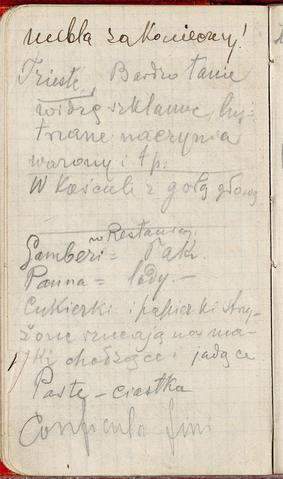 mebla zakonieczny!
Triest, Bardzo tanie
widzę szklanne, kry-
ształowe naczynia
wazony i tp.
W Kościuli z gołą głową
w Restauracy.
Gamberi = Raki.
Panna = lody. —
Cukierki i papierki stry-
żone rzucają na ma-
ski chodzące i jadące
Paste — ciastka